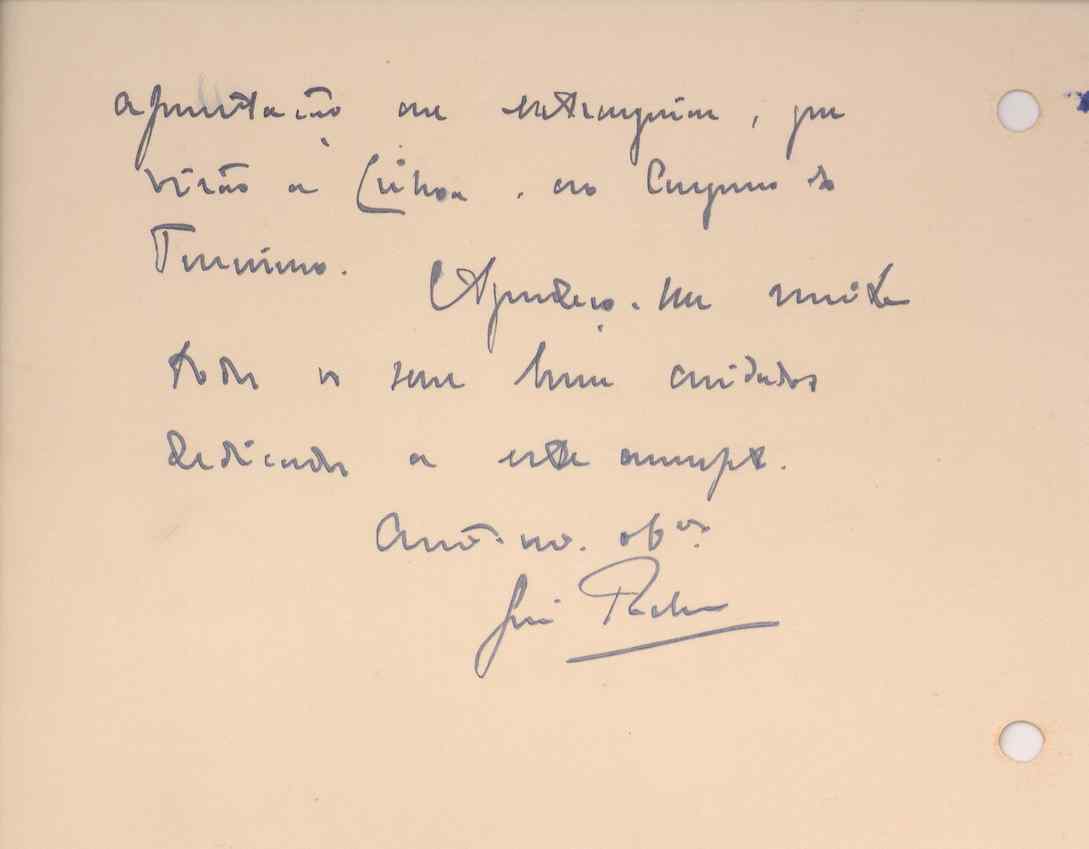 apresentação aos estrangeiros, que
virão a Lisboa, ao Congresso do
Turismo. Agradeço-lhe muito
todos os seus bons cuidados
dedicados a este assumpto.
obº.
José